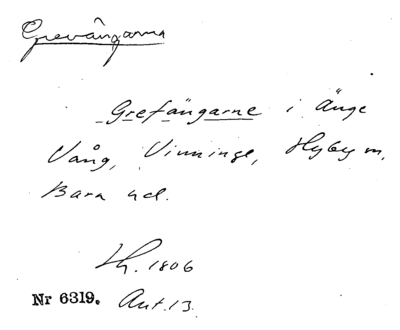 Grevängarna
Grefängarne i Änge
Vång, Vinninge, Hyby m,
Bara hd.
Lh. 1806
Nr 6319. Akt. 13.